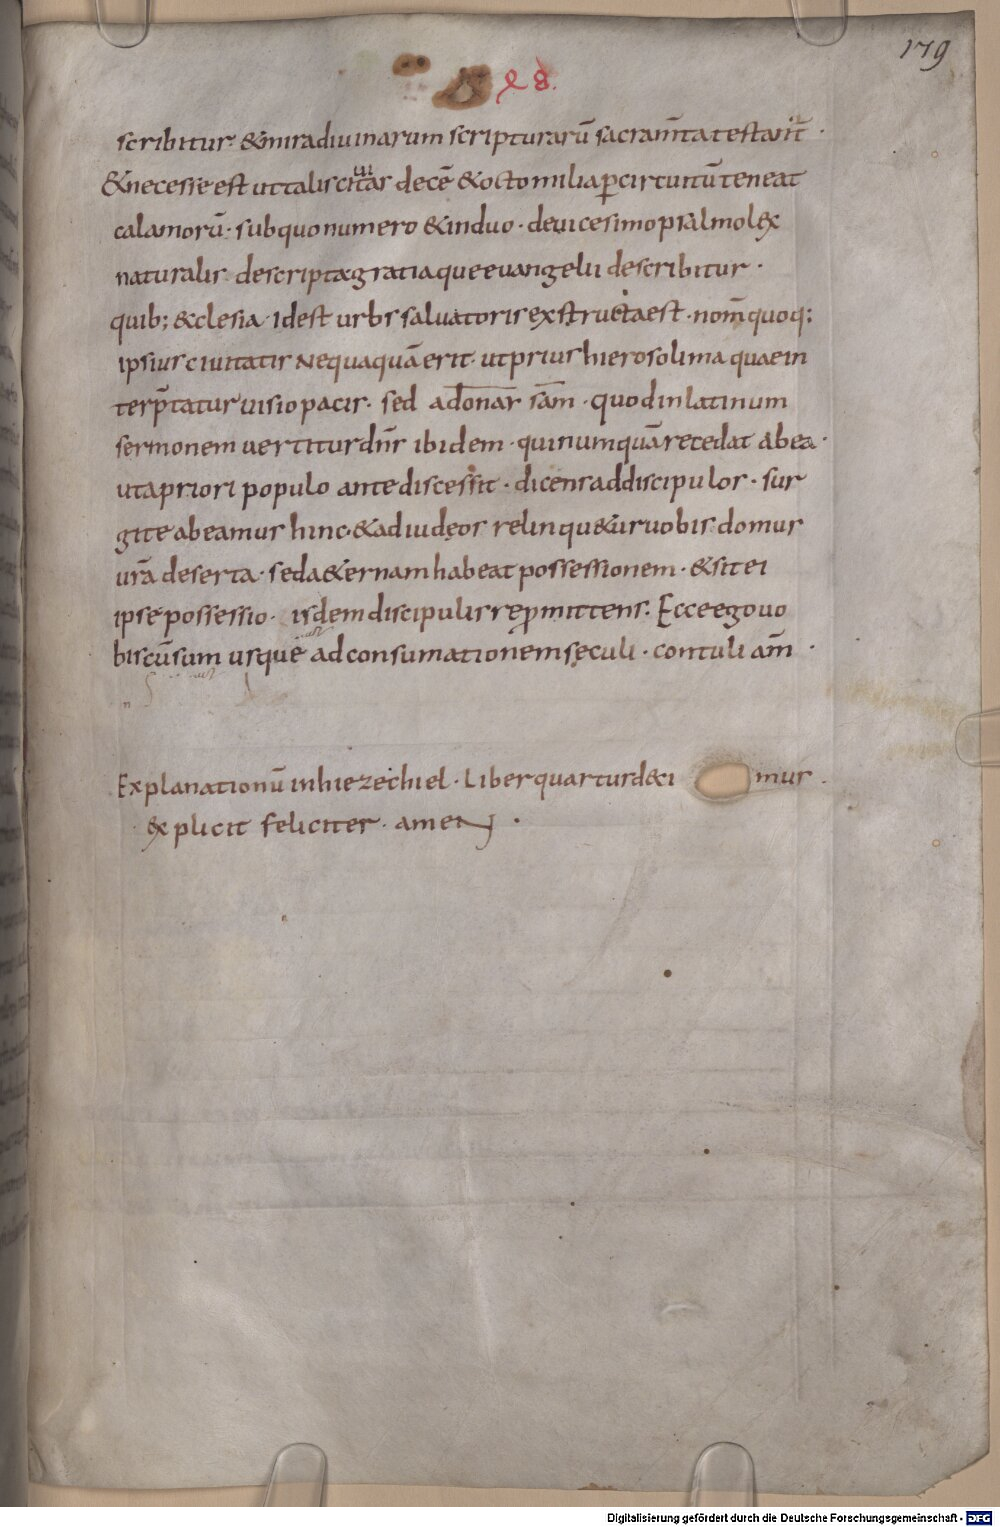 179
scribitur · & mira diuinarum scripturarū sacram̄ta testant̄ ·
& necesse est ut talis ciuitas decē & octo milia ꝑ circuitū teneat
calamorū · sub quo numero & in duo · deuicesimo psalmo lex
naturalis · descriptę gratiaque euangelii describitur ·
quib; & ęclesia · idest urbs saluatoris exstructa est · nom̄ quoq;
ipsius ciuitatis Nequaquā erit · ut prius hierosolima quae in
terp̄tatur uisio pacis · sed adonar sām · quod in latinum
sermonem uertitur dn̄s ibidem · qui numquā recedat ab ea ·
ut a priori populo ante discessit · dicens ad discipulos · sur
gite abeamus hinc · & ad iudęos relinqu&ur uobis domus
ur̄a deserta · sed a&ernam habeat possessionem · & sit ei
ipse possessio · isdem discipulis rep̄mittens · Ecce ego uo
biscū sum usque ad consumationem sęculi · contuli am̄ ·
Explanationū in hiezechiel · Liber quartus deci mus ·
explicit feliciter · amen ·
Digitalisierung gefördert durch die Deutsche Forschungsgemeinschaft - DFG